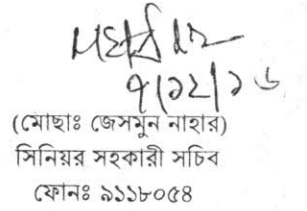 ৭/১২/১৬
(মোছাঃ জেসমুন নাহার)
সিনিয়র সহকারী সচিব
ফোনঃ ৯১১৮০৫৪